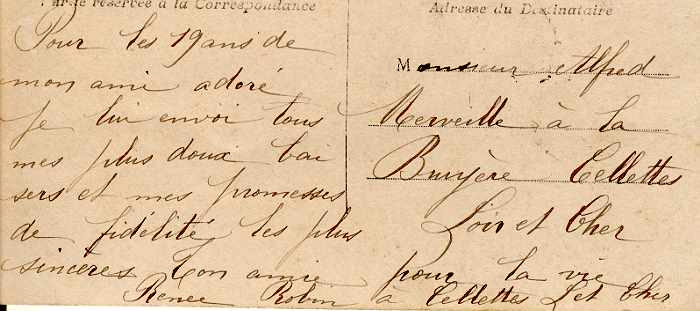 Partie réservée à la Correspondance
Pour les 19 ans de
mon ami adoré
je lui envoi tous
mes plus doux bai
sers et mes promesses
de fidélité, les plus
sincères ton amie pour la vie
Renée Robin à Cellettes L et Cher
Adresse du Destinataire
Monsieur Alfred
Merveille à la
Bruyère Cellettes
Loir et Cher